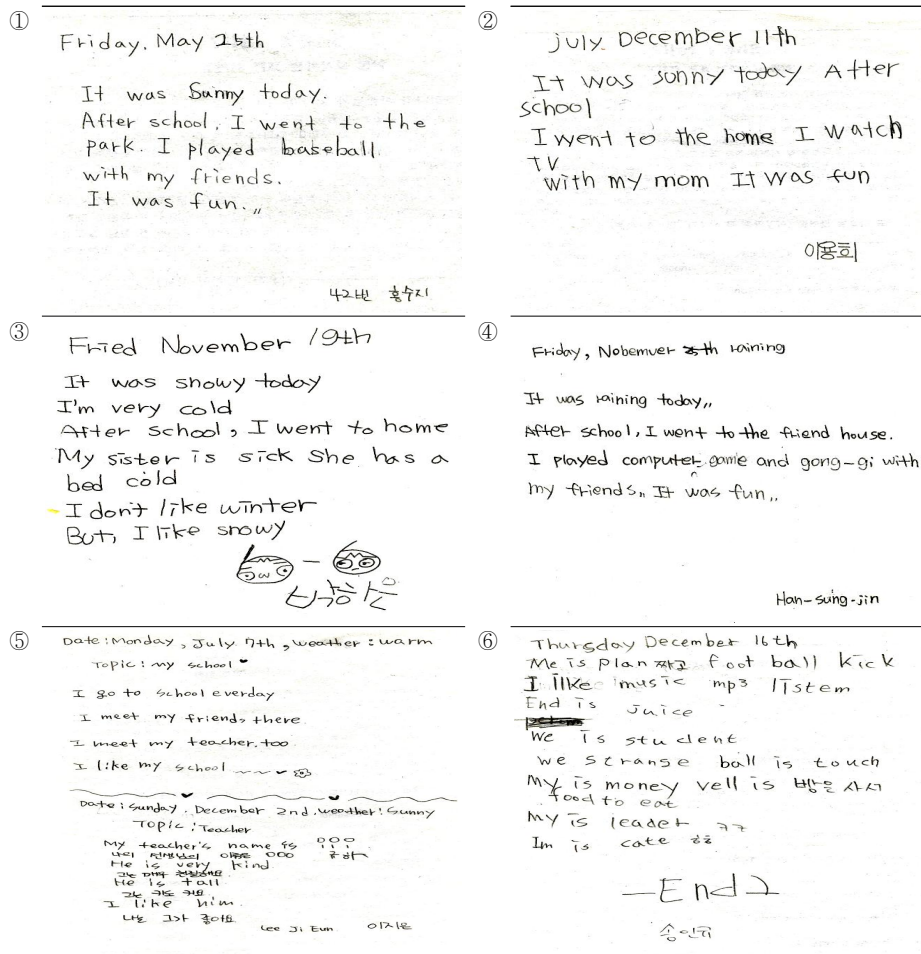 ①
Friday, May 25th
It was Sunny today.
After school, I went to the
park. I played baseball
with my friends.
It was fun.„
42번 홍수지
②
july December 11th
It was sonny today After
school
I went to the home I watch
TV
with my mom It was fun
이용희
③
Fried November 19th
It was snowy today
I'm very cold
After school, I went to home
My sister is sick She has a
bed cold
I don't like winter
But, I like snowy
박흥은
④
Friday, Nobemver th raining
It was raining today„
After school, I went to the friend house.
I played computer game and gong-gi with
my friends„ It was fun„
Han-sung-jin
⑤
Date : Monday, July 7th, weather : warm
Topic : my school
I go to school everday
I meet my friends there
I meet my teacher. too
I like my school
Date : Sunday. December 2nd. weather : Sunny
Topic : Teacher
My teacher's name is ???
나의 선생님의 이름은 000
He is very kind
그는 매우 친절해요
He is tall
그는 키도 커요
I like him.
나는 그가 좋아요
Lee Ji Eun 이지은
⑥
Thursday December 16th
Me is plan 짜고 foot ball kick
I like music mp3 listem
End is juice
We is student
we stranse ball is touch
My is money vell is 빵을 사서
food to eat
My is leader ㅋㅋ
Im is cate
End
송인규